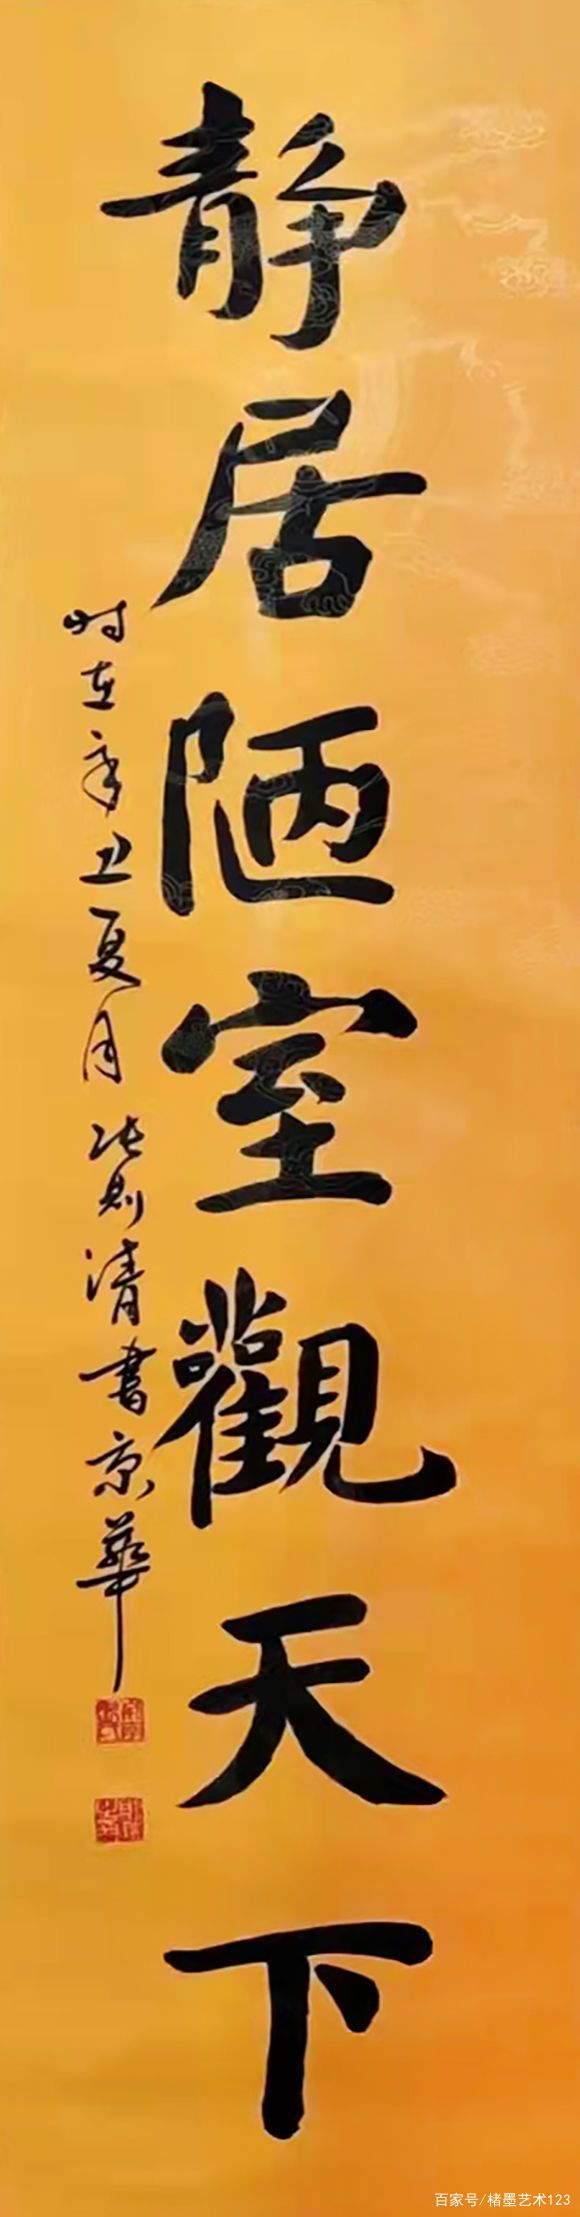 静居陋室觀天下
时在辛丑夏月张则清書京華
百家号/楮墨艺术123